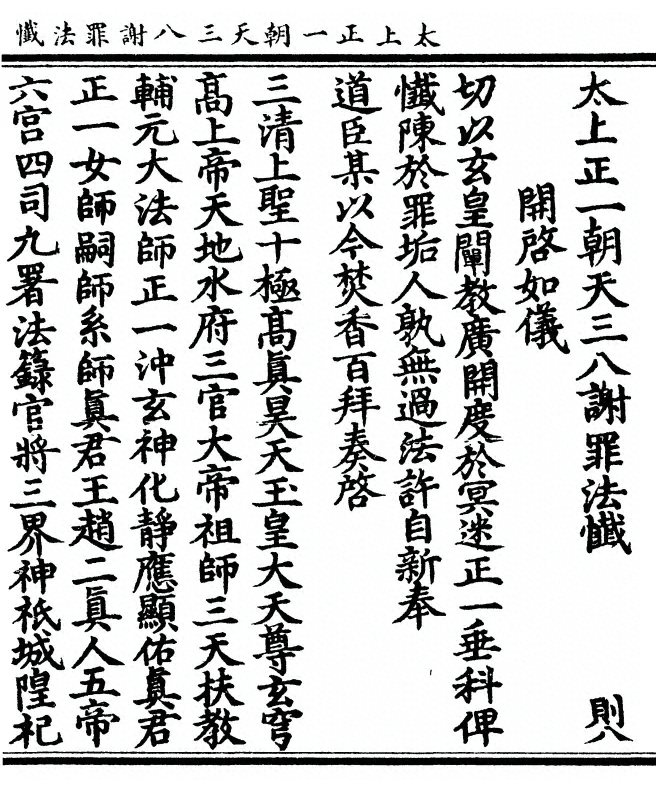 太上正一朝天三八謝罪法懺
太上正一朝天三八謝罪法懺 則八
開啓如儀
切以玄皇闡教廣開度於冥迷正一垂科俾
懺陳於罪垢人孰無過法許自新奉
道臣某以今焚香百拜奏啓
三清上聖十極高眞昊天玉皇大天尊玄穹
高上帝天地水府三官大帝祖師三天扶教
輔元大法師正一沖玄神化靜應顯佑眞君
正一女師嗣師系師眞君王趙二眞人五帝
六宮四司九署法籙官將三界神祇城隍杞